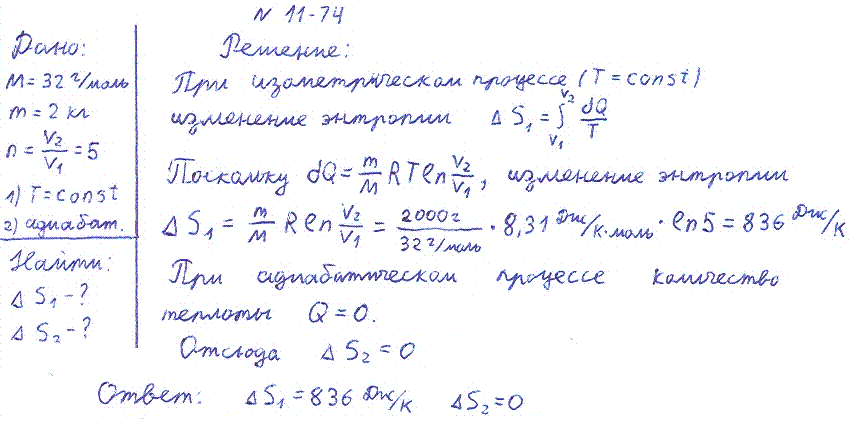 N 11-74
Дано:
M = 32 г/моль
m = 2 кг
n = V₂/V₁ = 5
1) T = const
2) адиабат.
Найти:
Δ S₁ - ?
Δ S₂ - ?
Решение:
При изометрическом процессе (T = const)
изменение энтропии Δ S₁ = ∫_{V₁}^{V₂} dQ/T
Поскольку dQ = m/M R T ln V₂/V₁, изменение энтропии
Δ S₁ = m/M R ln V₂/V₁ = 2000 г / 32 г/моль · 8,31 Дж/К·моль · ln 5 = 836 Дж/К
При адиабатическом процессе количество
теплоты Q = 0.
Отсюда Δ S₂ = 0
Ответ: Δ S₁ = 836 Дж/К Δ S₂ = 0